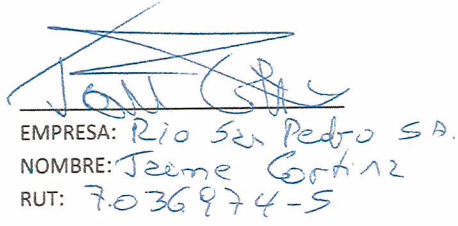 EMPRESA: Rio San Pedro SA.
NOMBRE: Jaime Cortinz
RUT: 7.036.974-5